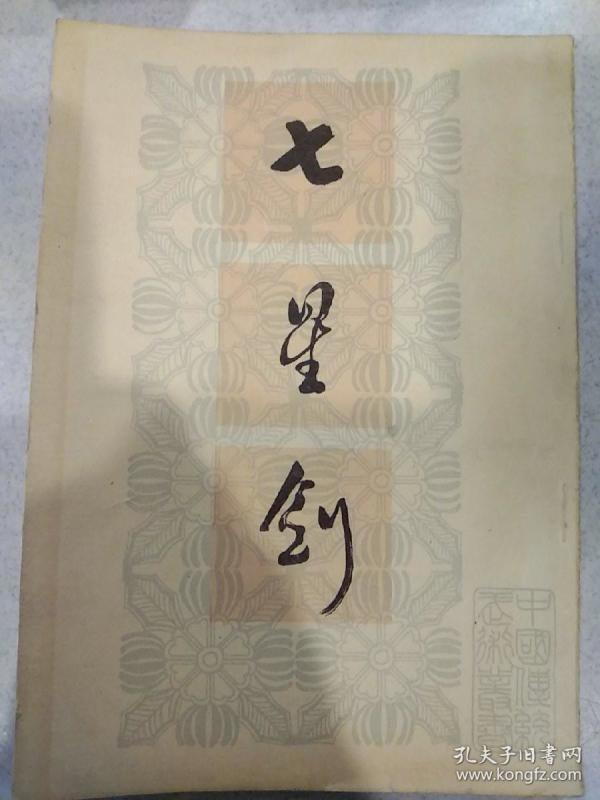 七星剑
中國傳統
武術叢書
孔夫子旧書网
www.kongfz.com